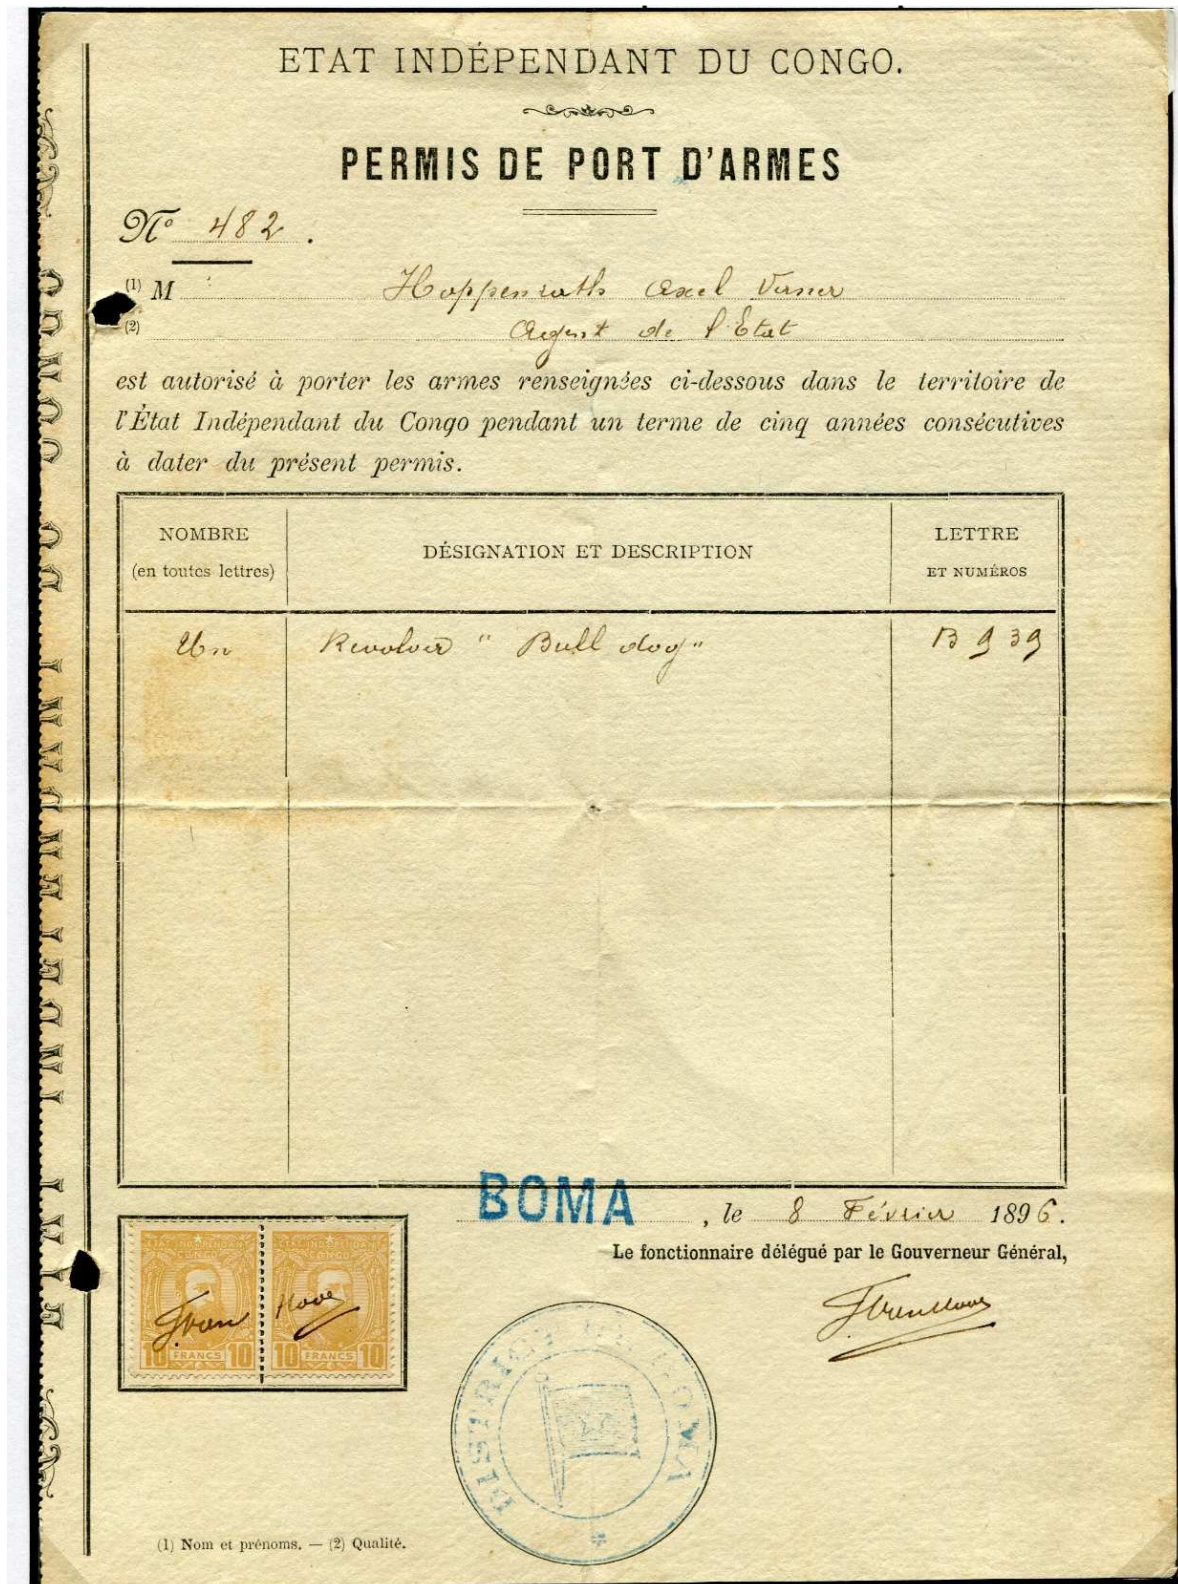 ETAT INDÉPENDANT DU CONGO.
PERMIS DE PORT D'ARMES
No 482.
(1) M Hoppenrath Axel Verner
(2) Agent de l'Etat
est autorisé à porter les armes renseignées ci-dessous dans le territoire de
l'État Indépendant du Congo pendant un terme de cinq années consécutives
à dater du présent permis.
NOMBRE
(en toutes lettres)
DÉSIGNATION ET DESCRIPTION
LETTRE
ET NUMÉROS
Un Revolver " Bull dog" B 939
BOMA, le 8 Février 1896.
Le fonctionnaire délégué par le Gouverneur Général,
ETAT INDÉPENDANT ETAT INDÉPENDANT
CONGO CONGO
10 FRANCS 10 10 FRANCS 10
DISTRICT DE BOMA
(1) Nom et prénoms. — (2) Qualité.